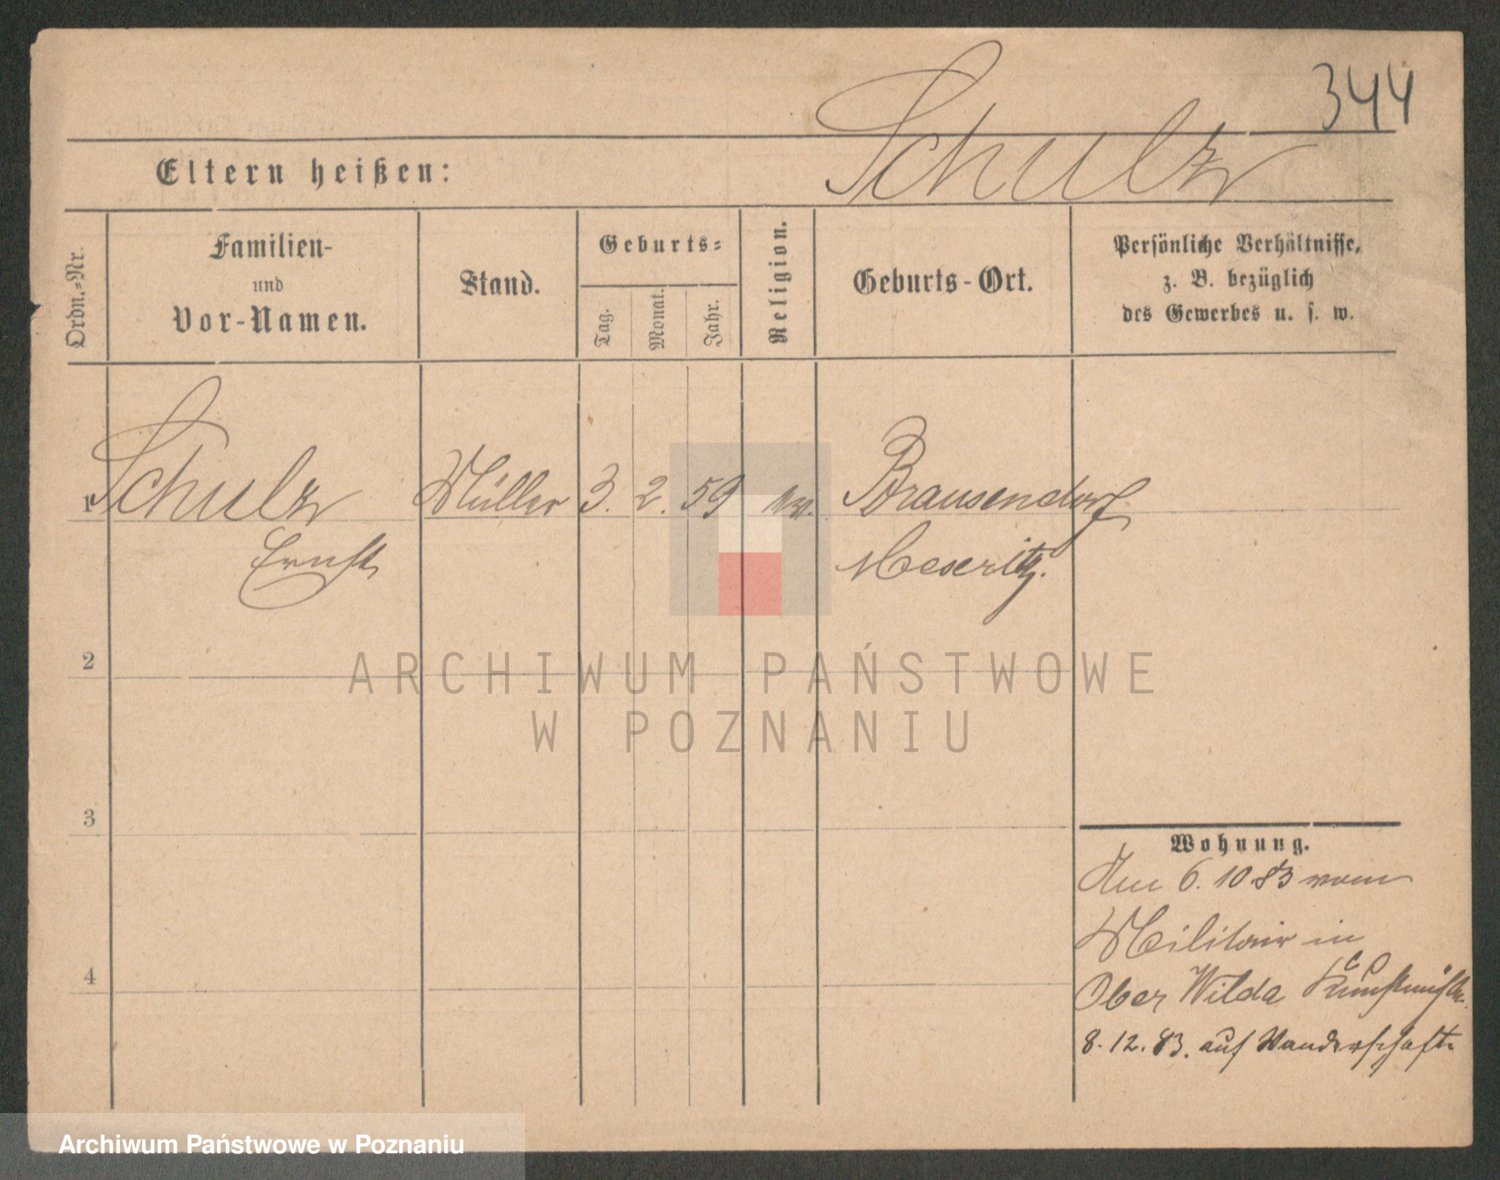 344
Schulz
Eltern heißen:
Ordn.-Nr.
Familien-
und
Vor-Namen.
Stand.
Geburts-
Tag.
Monat.
Jahr.
Religion.
Geburts-Ort.
Persönliche Verhältnisse,
z. B. bezüglich
des Gewerbes u. s. w.
1 Schulz Müller 3. 2. 59 ev. Brausendorf
Ernst Meseritz.
2
ARCHIWUM PAŃSTWOWE
W POZNANIU
3
4
Wohnung.
Am 6.10.83 vom
Militair in
Ober Wilda
8.12.83. auf Wanderschaft
Archiwum Państwowe w Poznaniu